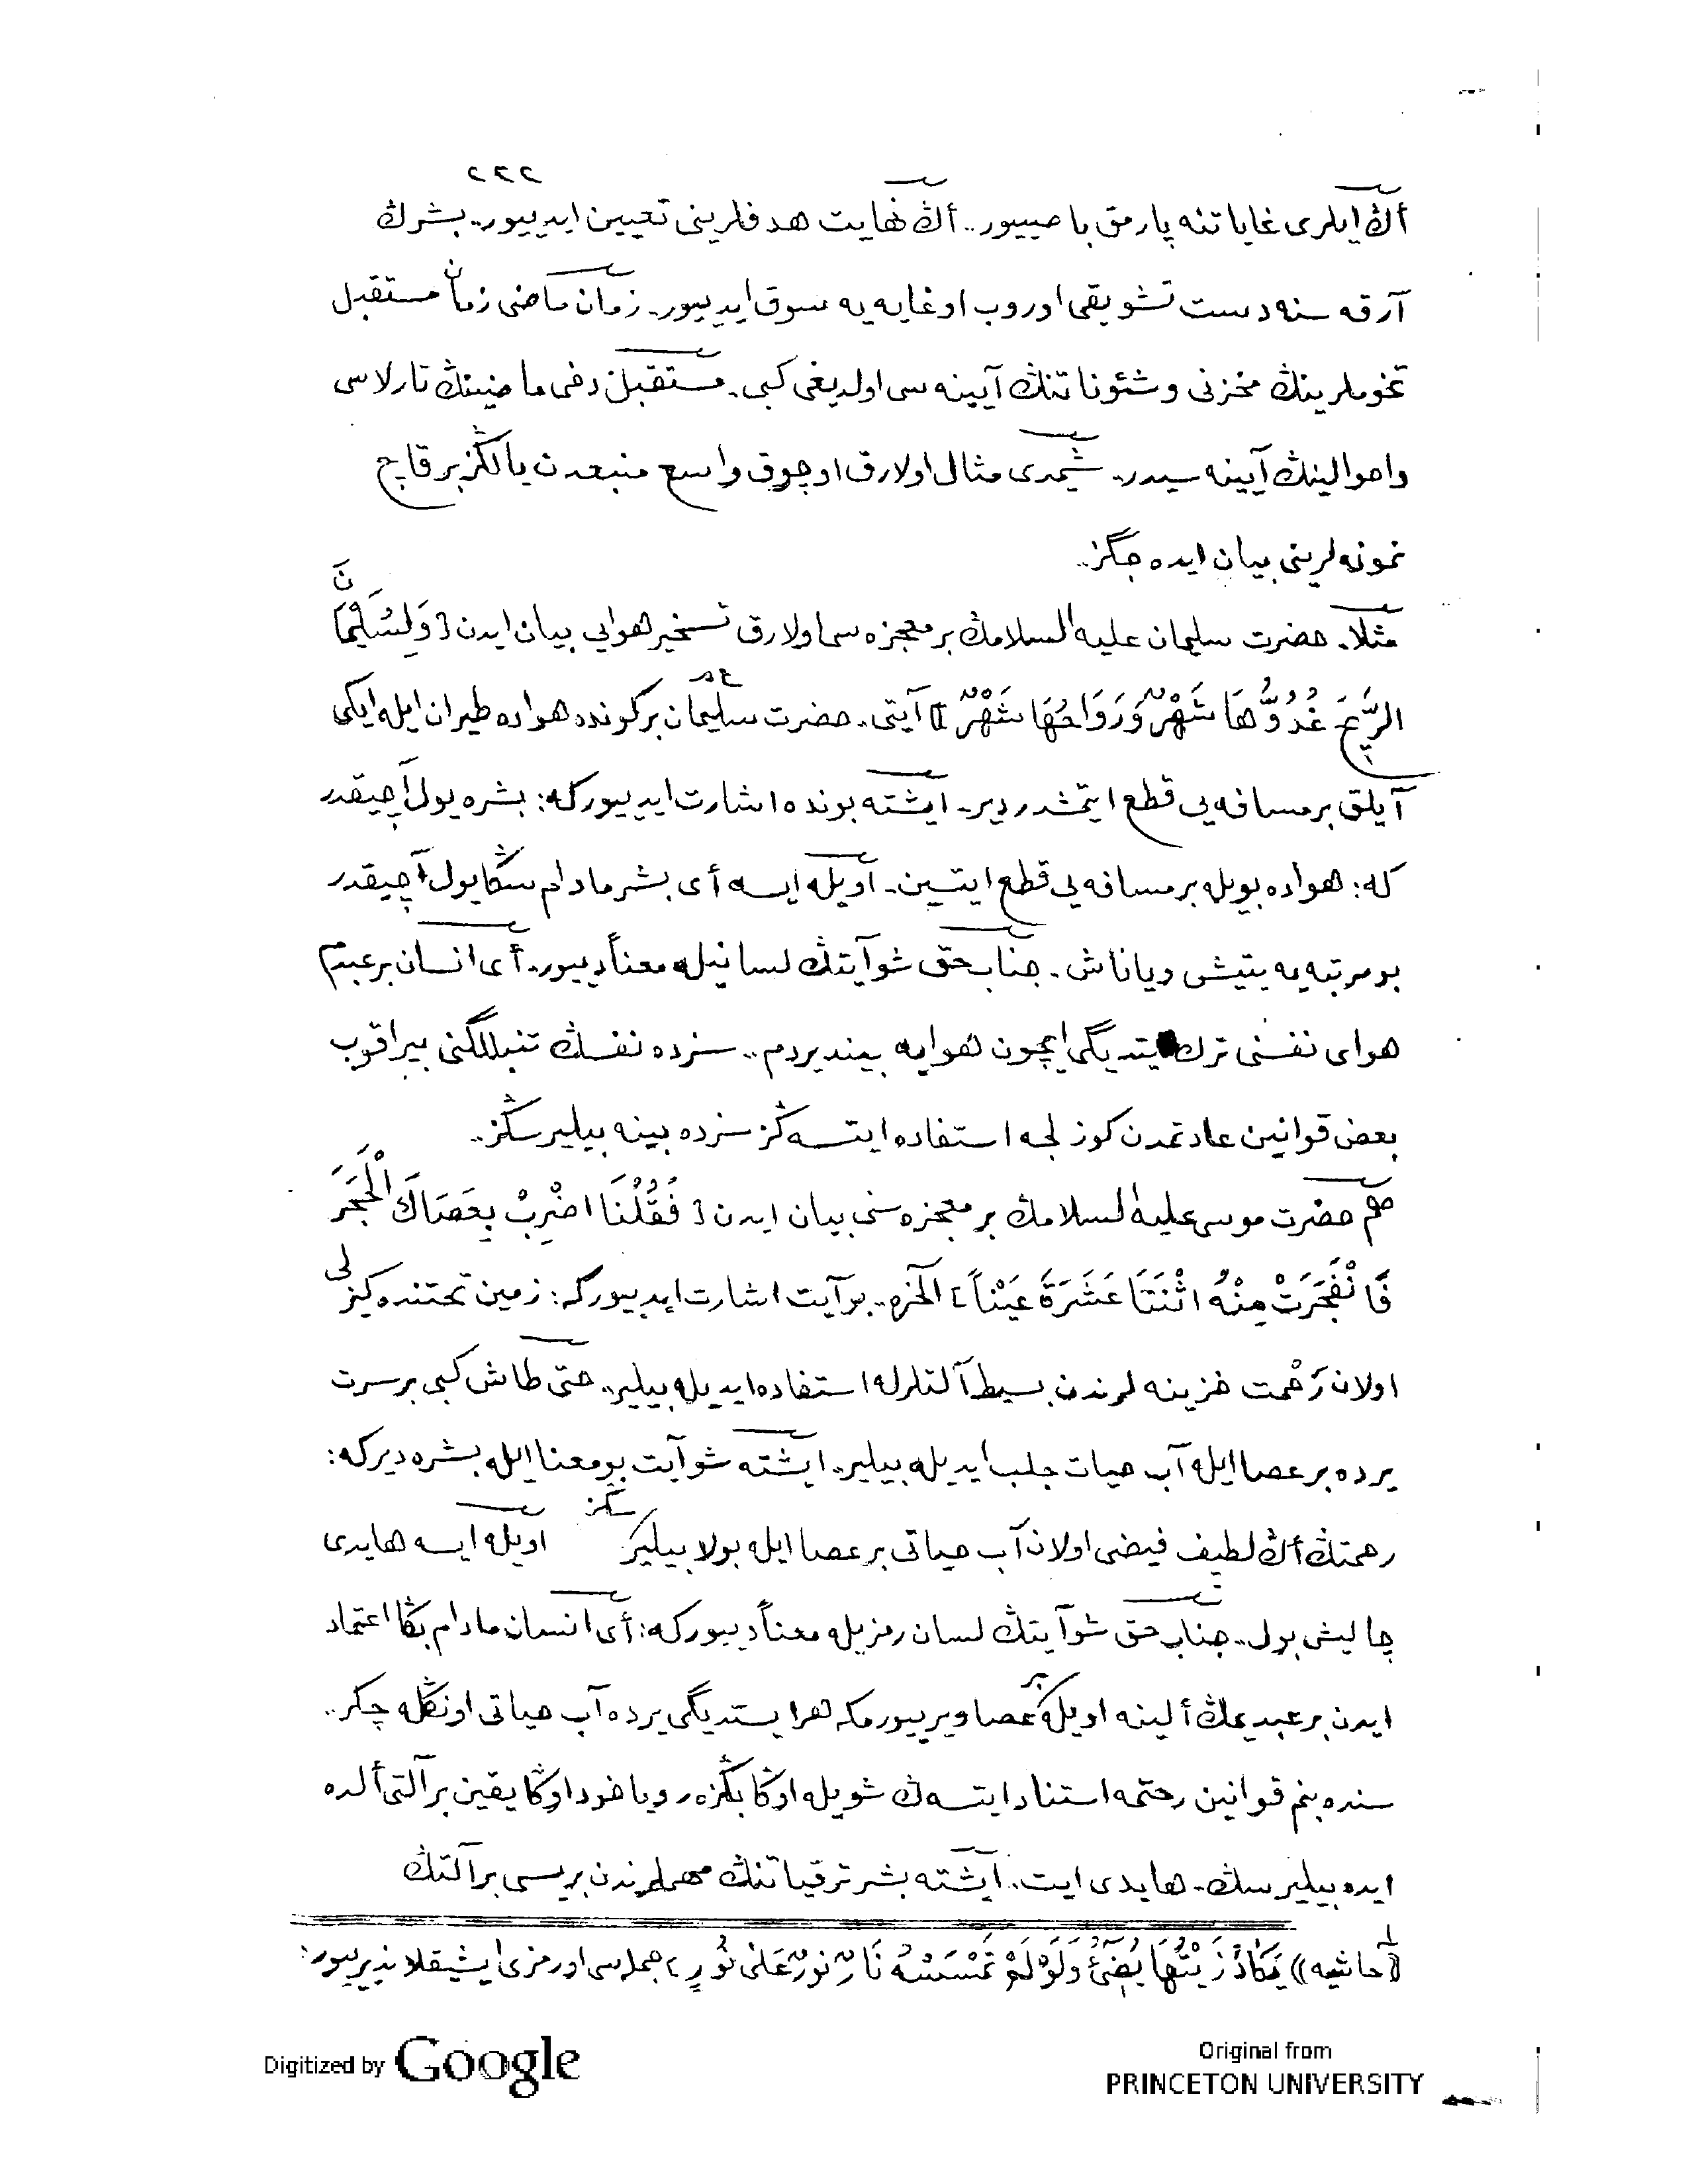 ٢٣٢
أڭ ايلرى غاياتنه پارمق باصييور.. أڭ نهايت هدفلرينى تعيين ايدييور.. بشرڭ
آرقه سنه دست تشويقى اوروب او غايه يه سوق ايدييور. زمان ماضى زمان مستقبل
تخوملرينڭ مخزنى و شئوناتنڭ آيينه سى اولديغى كبى. مستقبل دخى ماضينڭ تارلاسى
واحوالينڭ آيينه سيدر. شيمدى مثال اولارق او چوق واسع منبعدن يالڭز بر قاچ
نمونه لرينى بيان ايده جگز..
مثلا. حضرت سليمان عليه السلامڭ بر معجزه سى اولارق تسخير هوايى بيان ايدن ﴿ وَلِسُلَيْمٰنَ
الرِّيحَ غُدُوُّهَا شَهْرٌ وَرَوَاحُهَا شَهْرٌ ﴾ آيتى. حضرت سليمان عم بر كونده هواده طيران ايله ايكى
آيلق بر مسافه يى قطع ايتمشدر دير. ايشته بونده اشارت ايدييور كه: بشره يول آچيقدر
كه: هواده بويله بر مسافه يى قطع ايتسين. اويله ايسه أى بشر مادام سڭا يول آچيقدر
بو مرتبه يه يتيش و ياناش. جناب حق شو آيتڭ لسانيله معناً دييور. أى انسان بر عبدم
هواى نفسنى ترك ايتديگى ايچون هوايه بينديردم.. سزده نفسڭ تنبللگنى بيراقوب
بعض قوانين عادتمدن كوزلجه استفاده ايتسه ڭز سزده بينه بيليرسڭز..
هم حضرت موسى عليه السلامڭ بر معجزه سنى بيان ايدن ﴿ فَقُلْنَا اضْرِبْ بِعَصَاكَ الْحَجَرَ
فَانْفَجَرَتْ مِنْهُ اثْنَتَا عَشَرَةَ عَيْناً ﴾ الخره.. بو آيت اشارت ايدييور كه: زمين تحتنده كيزلى
اولان رحمت خزينه لرندن بسيط آلتلرله استفاده ايديله بيلير. حتى طاش كبى بر سرت
يرده بر عصا ايله آب حيات جلب ايديله بيلير. ايشته شو آيت بو معنا ايله بشره دير كه:
رحمتڭ أڭ لطيف فيضى اولان آب حياتى بر عصا ايله بولا بيليرسڭز اويله ايسه هايدى
چاليش بول.. جناب حق شو آيتڭ لسان رمزيله معناً دييور كه: أى انسان مادام بڭا اعتماد
ايدن بر عبديمڭ ألينه اويله بر عصا ويرييورم كه هر ايستديگى يرده آب حياتى اونڭله چكر..
سنده بنم قوانين رحمتمه استناد ايتسه ڭ شويله اوڭا بڭزه ر وياخود اوڭا يقين بر آلتى ألده
ايده بيليرسڭ. هايدى ايت.. ايشته بشر ترقياتنڭ مهملرندن بريسى بر آلتڭ
(حاشيه) يَكَادُ زَيْتُهَا يُضِىءُ وَلَوْ لَمْ تَمْسَسْهُ نَارٌ نُورٌ عَلٰى نُورٍ ﴾ جمله سى او رمزى ايشيقلانديرييور:
Digitized by Google
Original from
PRINCETON UNIVERSITY